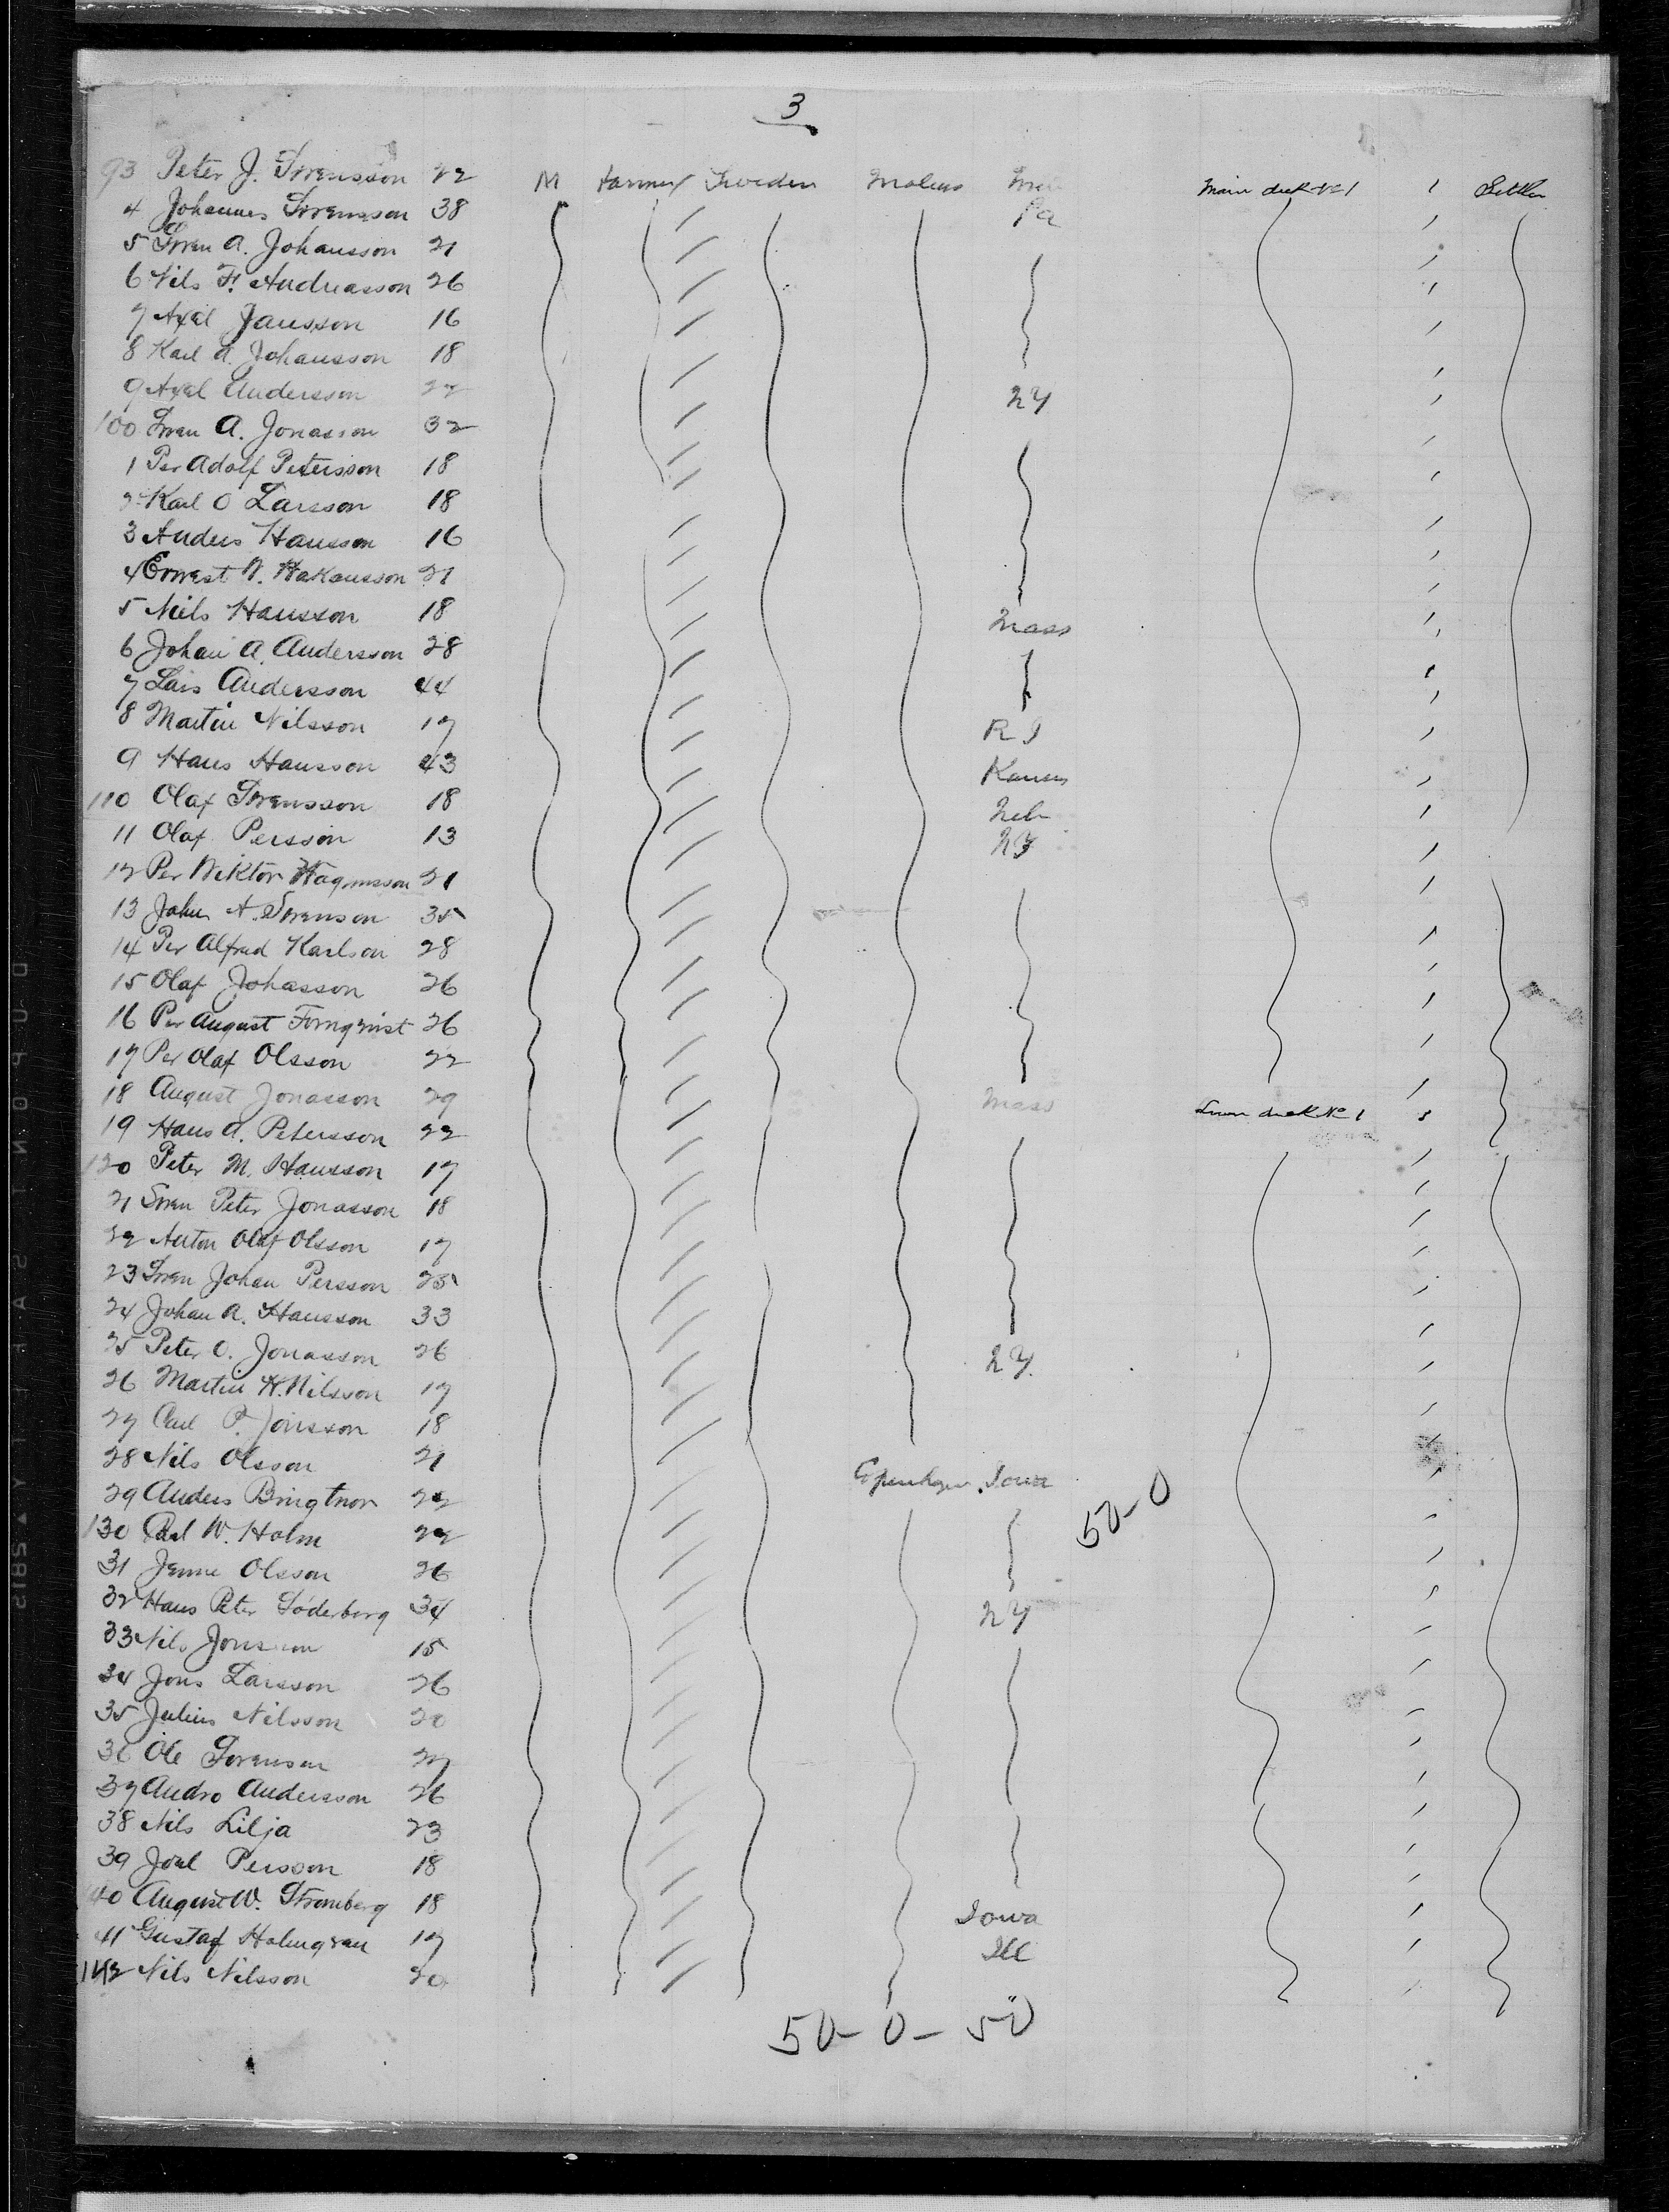 3
93 Peter J. Svensson 22 M Farmer Sweden Malmo Main deck No 1 1 Settler
4 Johannes Svensson 38 Pa
5 Sven A. Johansson 21
6 Nils F. Andreasson 26
7 Axel Jansson 16
8 Karl A. Johansson 18
9 Axel Andersson 22 NY
100 Sven A. Jonasson 32
1 Per Adolf Petersson 18
2 Karl O Larsson 18
3 Anders Hansson 16
4 Ernest W. Hakansson 21
5 Niels Hansson 18 Mass
6 Johan A. Andersson 28
7 Lars Andersson 44
8 Martin Nilsson 17 R I
9 Hans Hansson 43 Kansas
110 Olaf Svensson 18 Neb
11 Olaf Persson 13 NY
12 Per Wiktor 21
13 John A. Svenson 35
14 Per Alfred Karlson 28
15 Olaf Johasson 26
16 Per August 26
17 Per Olaf Olsson 22
18 August Jonasson 29 Mass Lower deck No 1 1
19 Hans A. Petersson 22
120 Peter M. Hansson 17
21 Sven Peter Jonasson 18
22 Anton Olaf Olsson 17
23 Sven Johan Persson 25
24 Johan A. Hansson 33
25 Peter O. Jonasson 26 NY.
26 Martin H. Nilsson 17
27 Carl P. Jonsson 18
28 Nils Olsson 21 Copenhagen Iowa
29 Anders 22 50-0
130 Carl W. Holm 22
31 Jenne Olsson 26
32 Hans Peter Söderberg 34 NY
33 Nils Jonsson 15
34 Jons Larsson 26
35 Julius Nilsson 20
36 Ole Svenson 27
37 Andro Andersson 26
38 Nils Lilja 23
39 Joel Persson 18
140 August W. Stromberg 18 Iowa
41 Gustaf Holmgren 17 Ill
142 Nils Nilsson 20
50-0-50